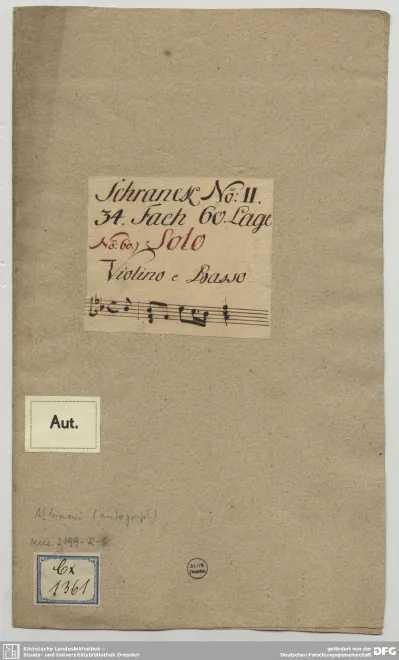 Schranck No: II.
34. Fach 60. Lage
No: 60.) Solo
Violino e Basso
Aut.
Albinoni (autograph)
Mus. 2199-R-6
Cx
1361
Sächsische Landesbibliothek –
Staats- und Universitätsbibliothek Dresden
gefördert von der
Deutschen Forschungsgemeinschaft
DFG